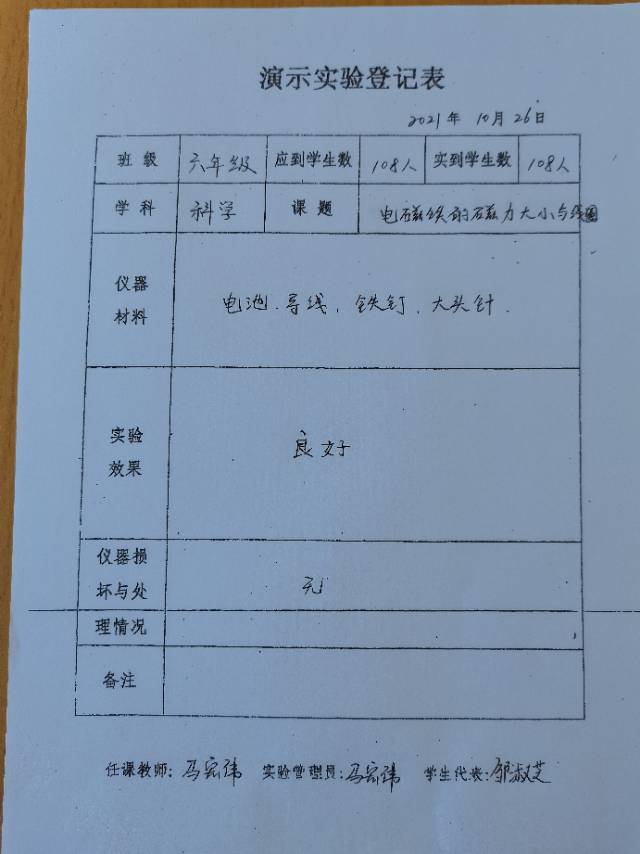 演示实验登记表
2021年 10月 26日
班 级 六年级 应到学生数 108人 实到学生数 108人
学 科 科学 课 题 电磁铁的磁力大小与线圈
仪器
材料 电池、导线、铁钉、大头针.
实验
效果 良好
仪器损
坏与处 无
理情况
备注
任课教师: 冯宏伟 实验管理员: 冯宏伟 学生代表: 邹淑芝